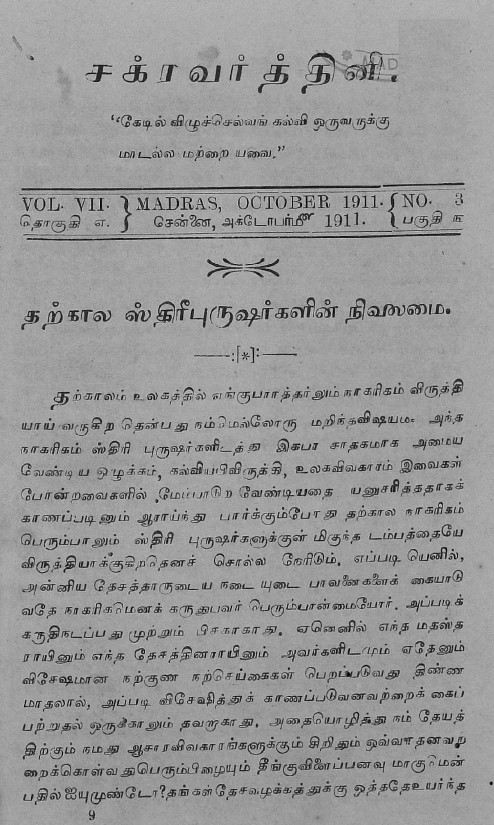 சக்ரவர்த்தினி.
"கேடில் விழுச்செல்வங் கல்வி ஒருவருக்கு
மாடல்ல மற்றை யவை."
VOL. VII. } MADRAS, OCTOBER 1911. { NO. 3
தொகுதி எ. } சென்னை, அக்டோபர்மீ 1911. { பகுதி ௩
தற்கால ஸ்திரீபுருஷர்களின் நிலைமை.
—:[*]:—
தற்காலம் உலகத்தில் எங்குபார்த்தாலும் நாகரிகம் விருத்தி
யாய் வருகிற தென்பது நம்மெல்லோரு மறிந்தவிஷயம். அந்த
நாகரிகம் ஸ்திரி புருஷர்களிடத்து இகபர சாதகமாக அமைய
வேண்டிய ஒழுக்கம், கல்வியபிவிருத்தி, உலகவிவகாரம் இவைகள்
போன்றவைகளில் மேம்பாடுற வேண்டியதை யனுசரித்ததாகக்
காணப்படினும் ஆராய்ந்து பார்க்கும்போது தற்கால நாகரிகம்
பெரும்பாலும் ஸ்திரி புருஷர்களுக்குள் மிகுந்த டம்பத்தையே
விருத்தியாக்குகிறதெனச் சொல்ல நேரிடும். எப்படி யெனில்,
அன்னிய தேசத்தாருடைய நடை யுடை பாவனைகளைக் கையாடு
வதே நாகரிகமெனக் கருதுபவர் பெரும்பான்மையோர். அப்படிக்
கருதிநடப்பது முற்றும் பிசகாகாது. ஏனெனில் எந்த மதஸ்த
ராயினும் எந்த தேசத்தினராயினும் அவர்களிடமும் ஏதேனும்
விசேஷமான நற்குண நற்செய்கைகள் பெறப்படுவது திண்ண
மாதலால், அப்படி விசேஷித்துக் காணப்படுவனவற்றைக் கைப்
பற்றுதல் ஒருக்காலும் தவறாகாது. அதையொழித்து நம் தேயத்
திற்கும் நமது ஆசாரவிவகாரங்களுக்கும் சிறிதும் ஒவ்வாதனவற்
றைக்கொள்வதுபெரும்பிழையும் தீங்குவிளைப்பனவு மாகுமென்
பதில் ஐயமுண்டோ? தங்கள்தேசவழக்கத்துக்கு ஒத்ததேஉயர்ந்த
9